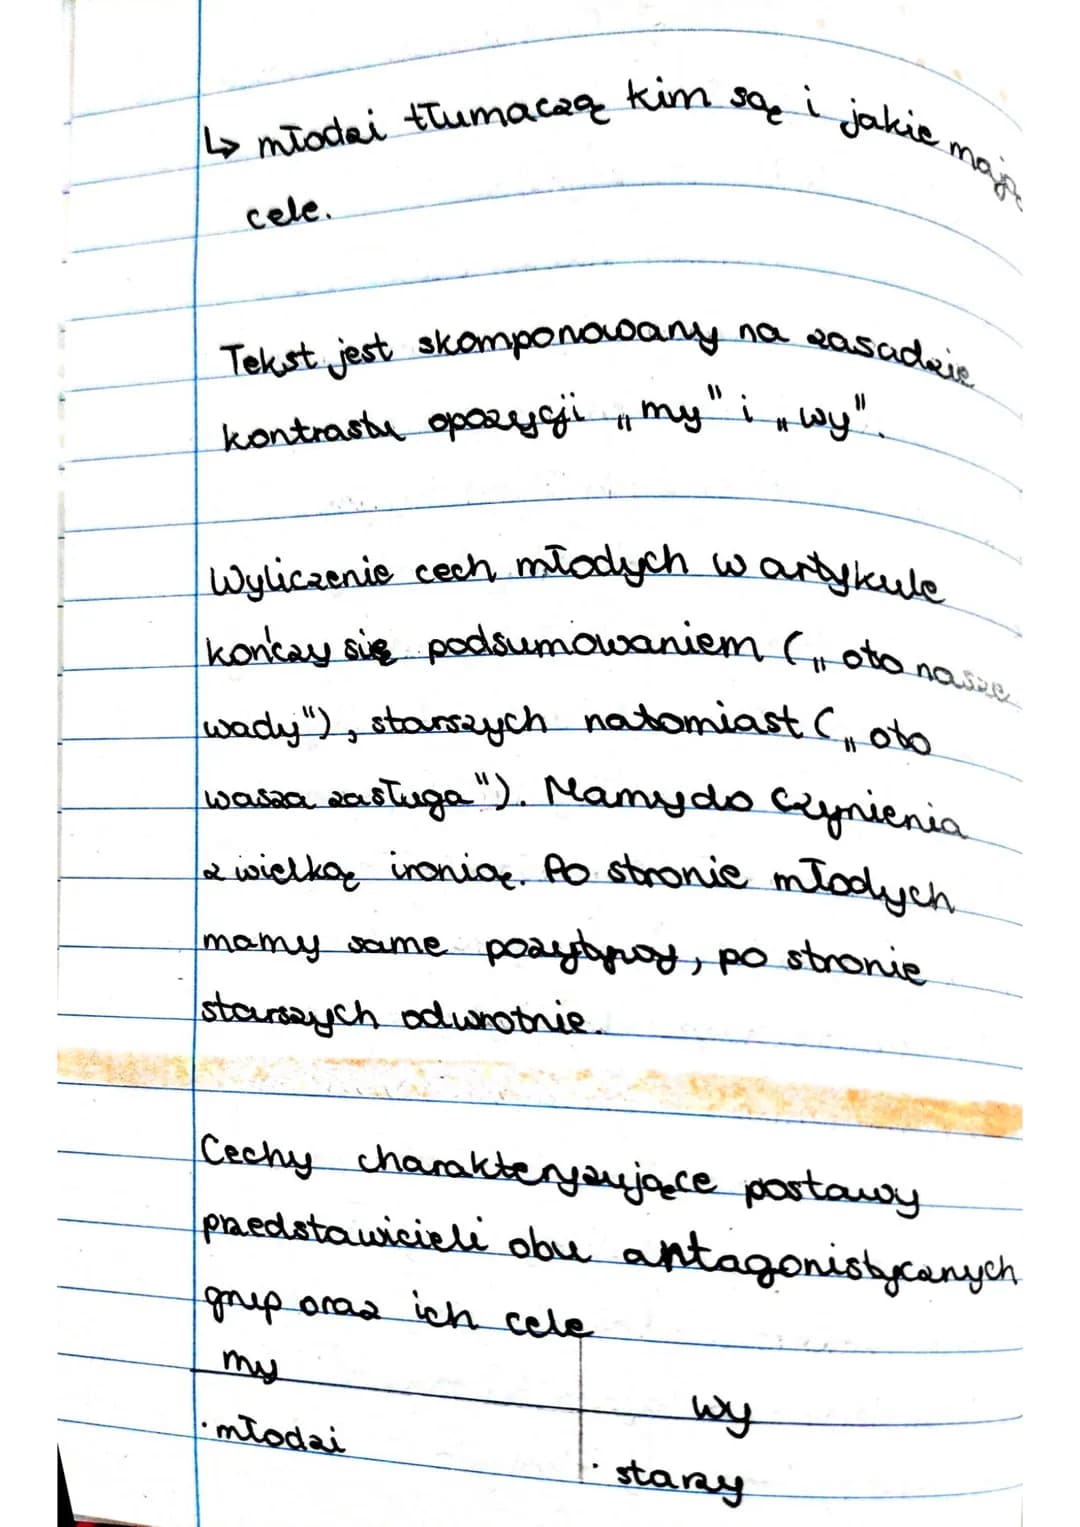 ↳ młodzi tłumaczą kim są i jakie mają
cele.
Tekst jest skomponowany na zasadzie
kontrastu opozycji „my" i „wy".
Wyliczenie cech młodych w artykule
kończy się podsumowaniem („oto nasze
wady"), starszych natomiast („oto
wasza zasługa"). Mamy do czynienia
z wielką ironią. Po stronie młodych
mamy same pozytywy, po stronie
starszych odwrotnie.
Cechy charakteryzujące postawy
przedstawicieli obu antagonistycznych
grup oraz ich cele
my
wy
· młodzi
· starzy